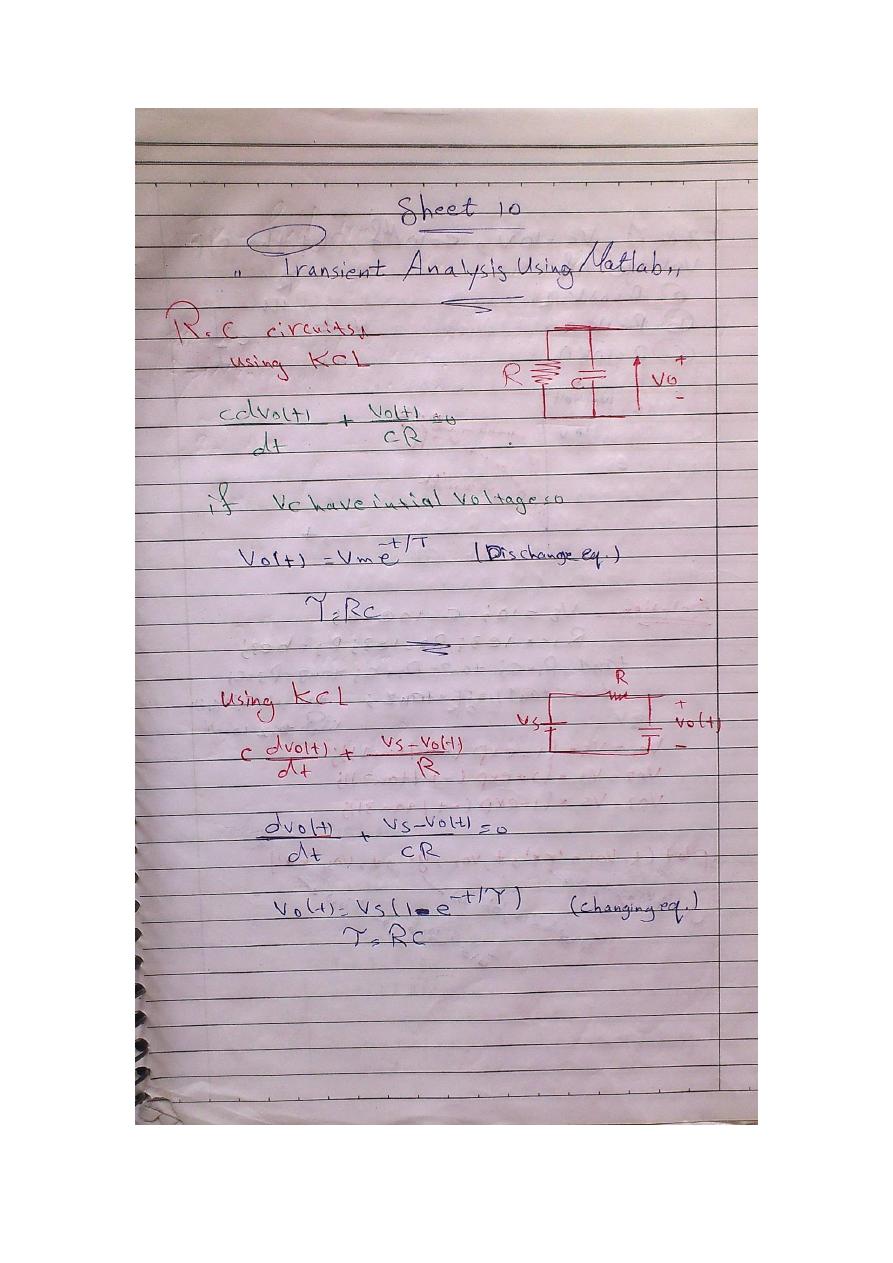 Sheet 10
" Transient Analysis Using Matlab,,
R.C circuits,
using KCL
R C Vo + -
cdvo(t)/dt + Vo(t)/CR = 0
if Vc have intial Voltage = 0
Vo(t) = Vm e^-t/T (Dischange eq.)
T = RC
using KCL
R
Vs + Vo(t) -
c dvo(t)/dt + Vs-Vo(t)/R
dvo(t)/dt + Vs-Vo(t)/CR = 0
Vo(t) = Vs(1-e^-t/T) (changing eq.)
T = RC